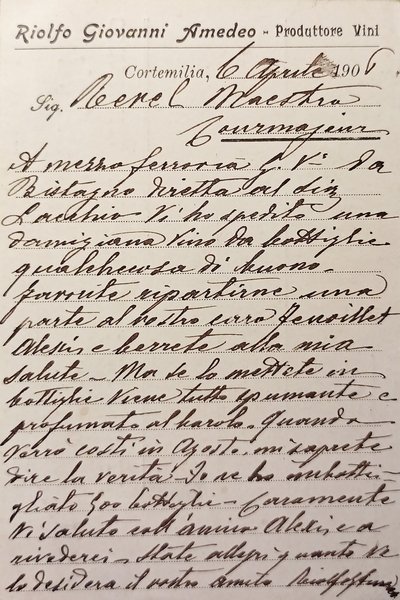 Riolfo Giovanni Amedeo - Produttore Vini
Cortemilia, 6 Aprile 190
Sig. Maestro
Courmajeur
A mezzo ferrovia G. Vª Da
Bistagno diretta al Sig
Vi ho spedito una
damigiana Vino da bottiglie
qualchecosa di buono.
favorite ripartirne una
parte al vostro caro
Alexis e berrete alla mia
salute - Ma se lo mettete in
bottiglie viene tutto spumante e
profumato al barolo. Quando
verrò costì in Agosto, mi saprete
dire la verità Io ne ho imbotti-
gliato 500 bottiglie - Caramente
Vi saluto coll'amico Alexis e a
rivederci - State allegri quanto ve
lo desidera il vostro amico